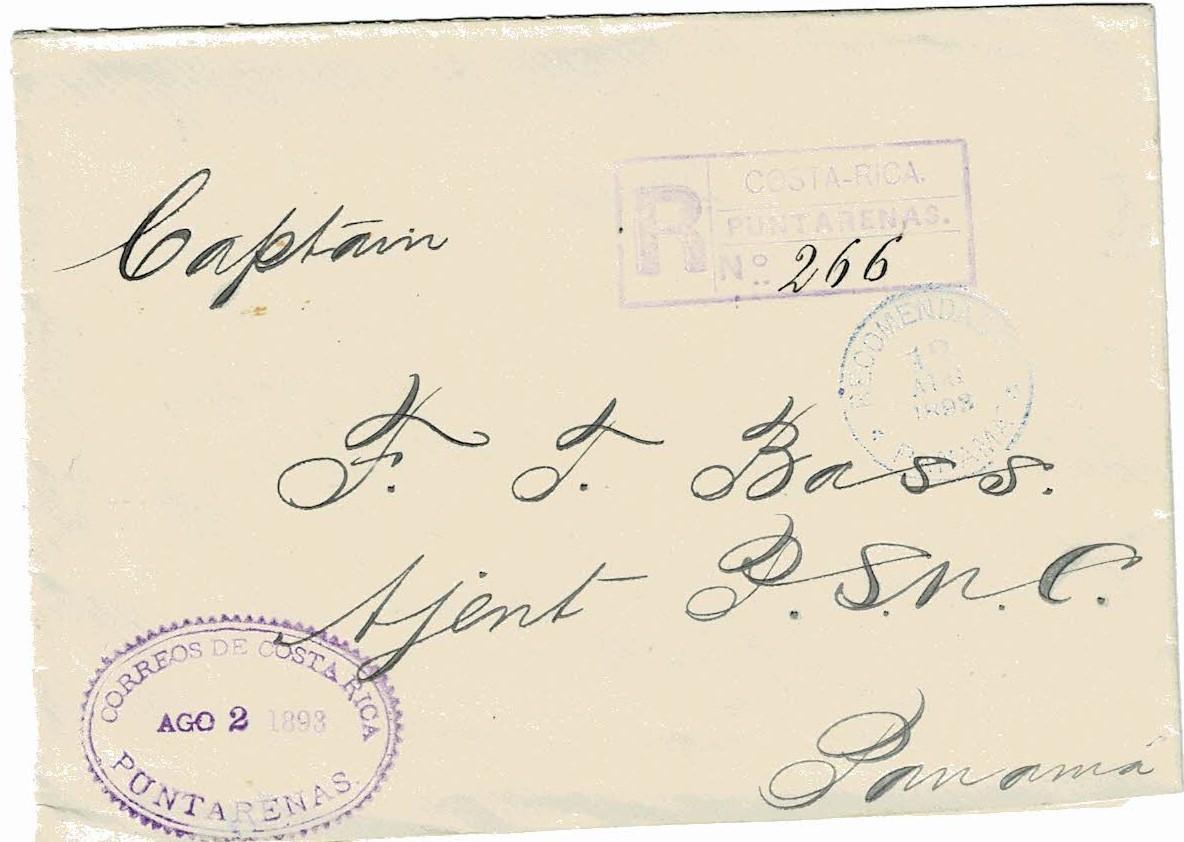 Captain
R
COSTA-RICA.
PUNTARENAS.
Nº. 266
RECOMENDA
12
1893
PANAMA
F. T. Bass.
Ajent P.S.N.C.
CORREOS DE COSTA RICA
AGO 2 1893
PUNTARENAS.
Panamá